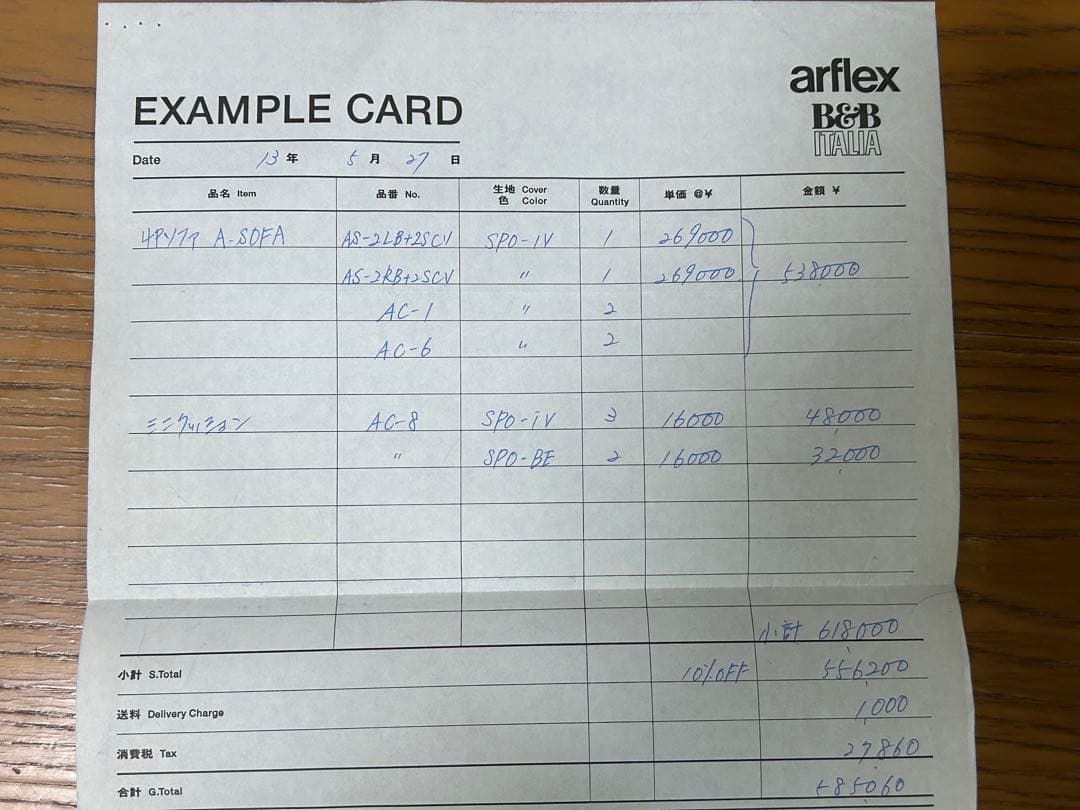 arflex
B&B
ITALIA
EXAMPLE CARD
Date 13 年 5 月 27 日
品名 Item 品番 No. 生地 Cover 色 Color 数量 Quantity 単価 @¥ 金額 ¥
4Pソファ A-SOFA AS-2LB+2SCV SPO-IV 1 269000
AS-2RB+2SCV 〃 1 269000 538000
AC-1 〃 2
AC-6 〃 2
ミニクッション AC-8 SPO-iV 3 16000 48,000
〃 SPO-BE 2 16000 32,000
小計 618,000
小計 S.Total 10%OFF 556,200
送料 Delivery Charge 1,000
消費税 Tax 27,860
合計 G.Total 585,060